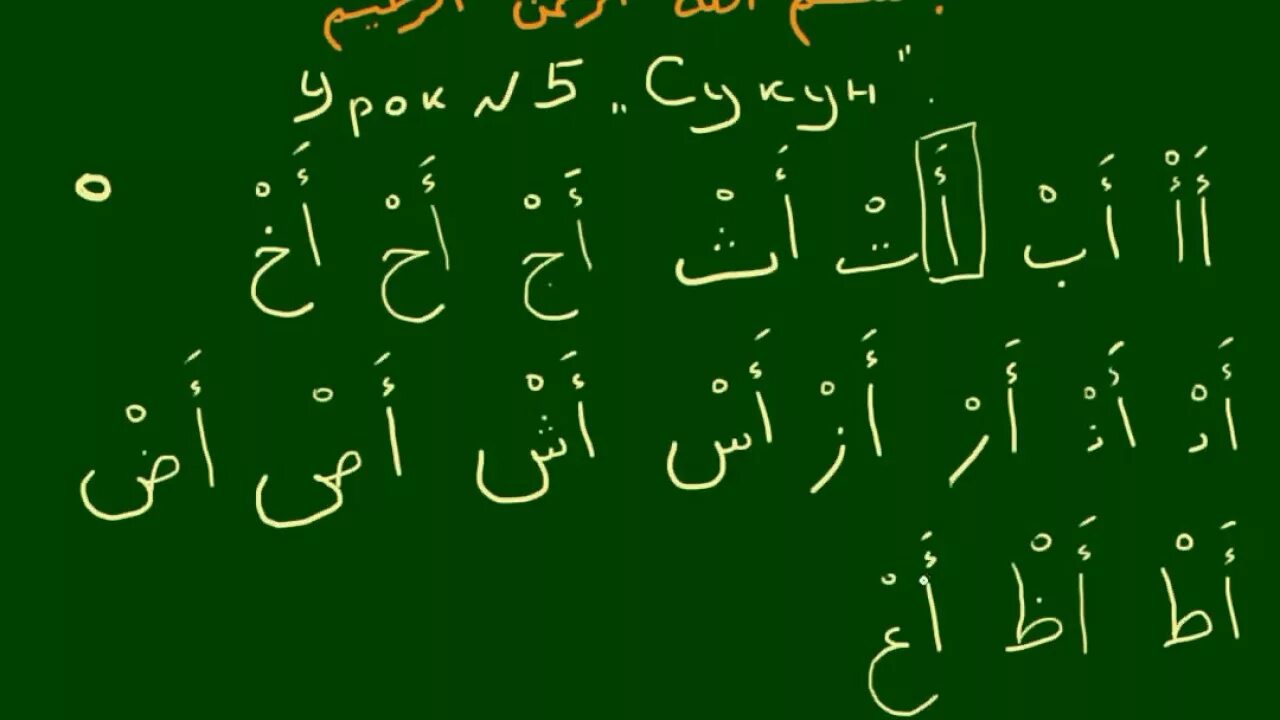 بسم الله الرحمن الرحيم
Урок №5 „Сукун".
أَأْ أَبْ أَتْ أَثْ أَجْ أَحْ أَخْ
أَدْ أَذْ أَرْ أَزْ أَسْ أَشْ أَصْ أَضْ
أَطْ أَظْ أَعْ